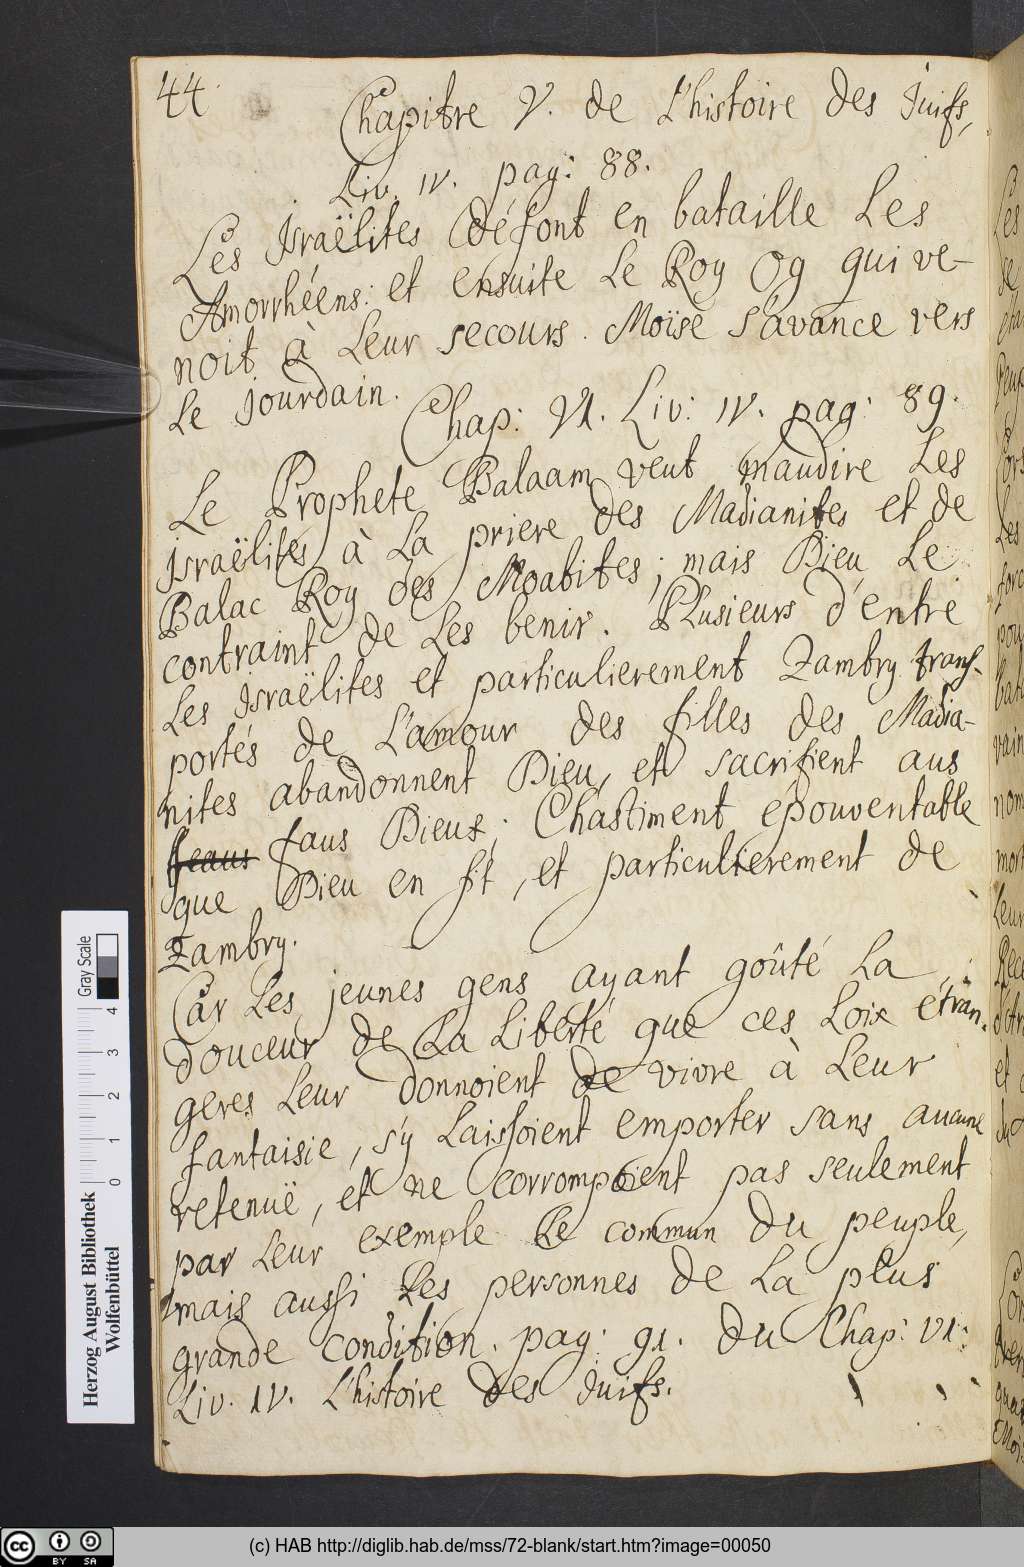 44.
Chapitre V. de L'histoire des Juifs,
Liv. IV. pag: 88.
Les Israëlites défont en bataille Les
Amorrhéens: et ensuite Le Roy Og qui ve-
noit à Leur secours. Moïse s'avance vers
Le Jourdain.
Chap: VI. Liv: IV. pag: 89.
Le Prophete Balaam veut maudire Les
Israëlites à La priere des Madianites et de
Balac Roy des Moabites; mais Dieu Le
contraint de Les benir. Plusieurs d'entre
Les Israëlites et particulierement Zambry trans-
portés de L'amour des filles des Madia-
nites abandonnent Dieu, et sacrifient aus
faus Dieux; Chastiment epouventable
que Dieu en fit, et particulierement de
Zambry.
Car Les jeunes gens ayant goûté La
douceur de La Liberté que ces Loix étran-
geres Leur donnoient de vivre à Leur
fantaisie, s'y Laissoient emporter sans aucune
retenuë, et ne corrompoient pas seulement
par Leur exemple Le commun du peuple,
mais aussi Les personnes de La plus
grande condition. pag: 91. du Chap: VI:
Liv. IV. L'histoire des Juifs.
Gray Scale
4 3 2 1 0
Herzog August Bibliothek
Wolfenbüttel
cc BY SA
(c) HAB http://diglib.hab.de/mss/72-blank/start.htm?image=00050